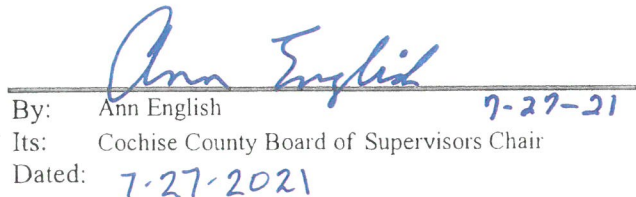 Ann English
By: Ann English 7-27-21
Its: Cochise County Board of Supervisors Chair
Dated: 7-27-2021